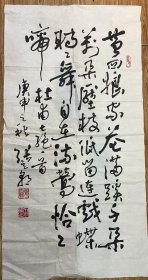 黄四娘家花满蹊千朵
万朵压枝低留连戏蝶
时时舞自在娇莺恰恰
啼 杜甫七绝一首
庚申之秋